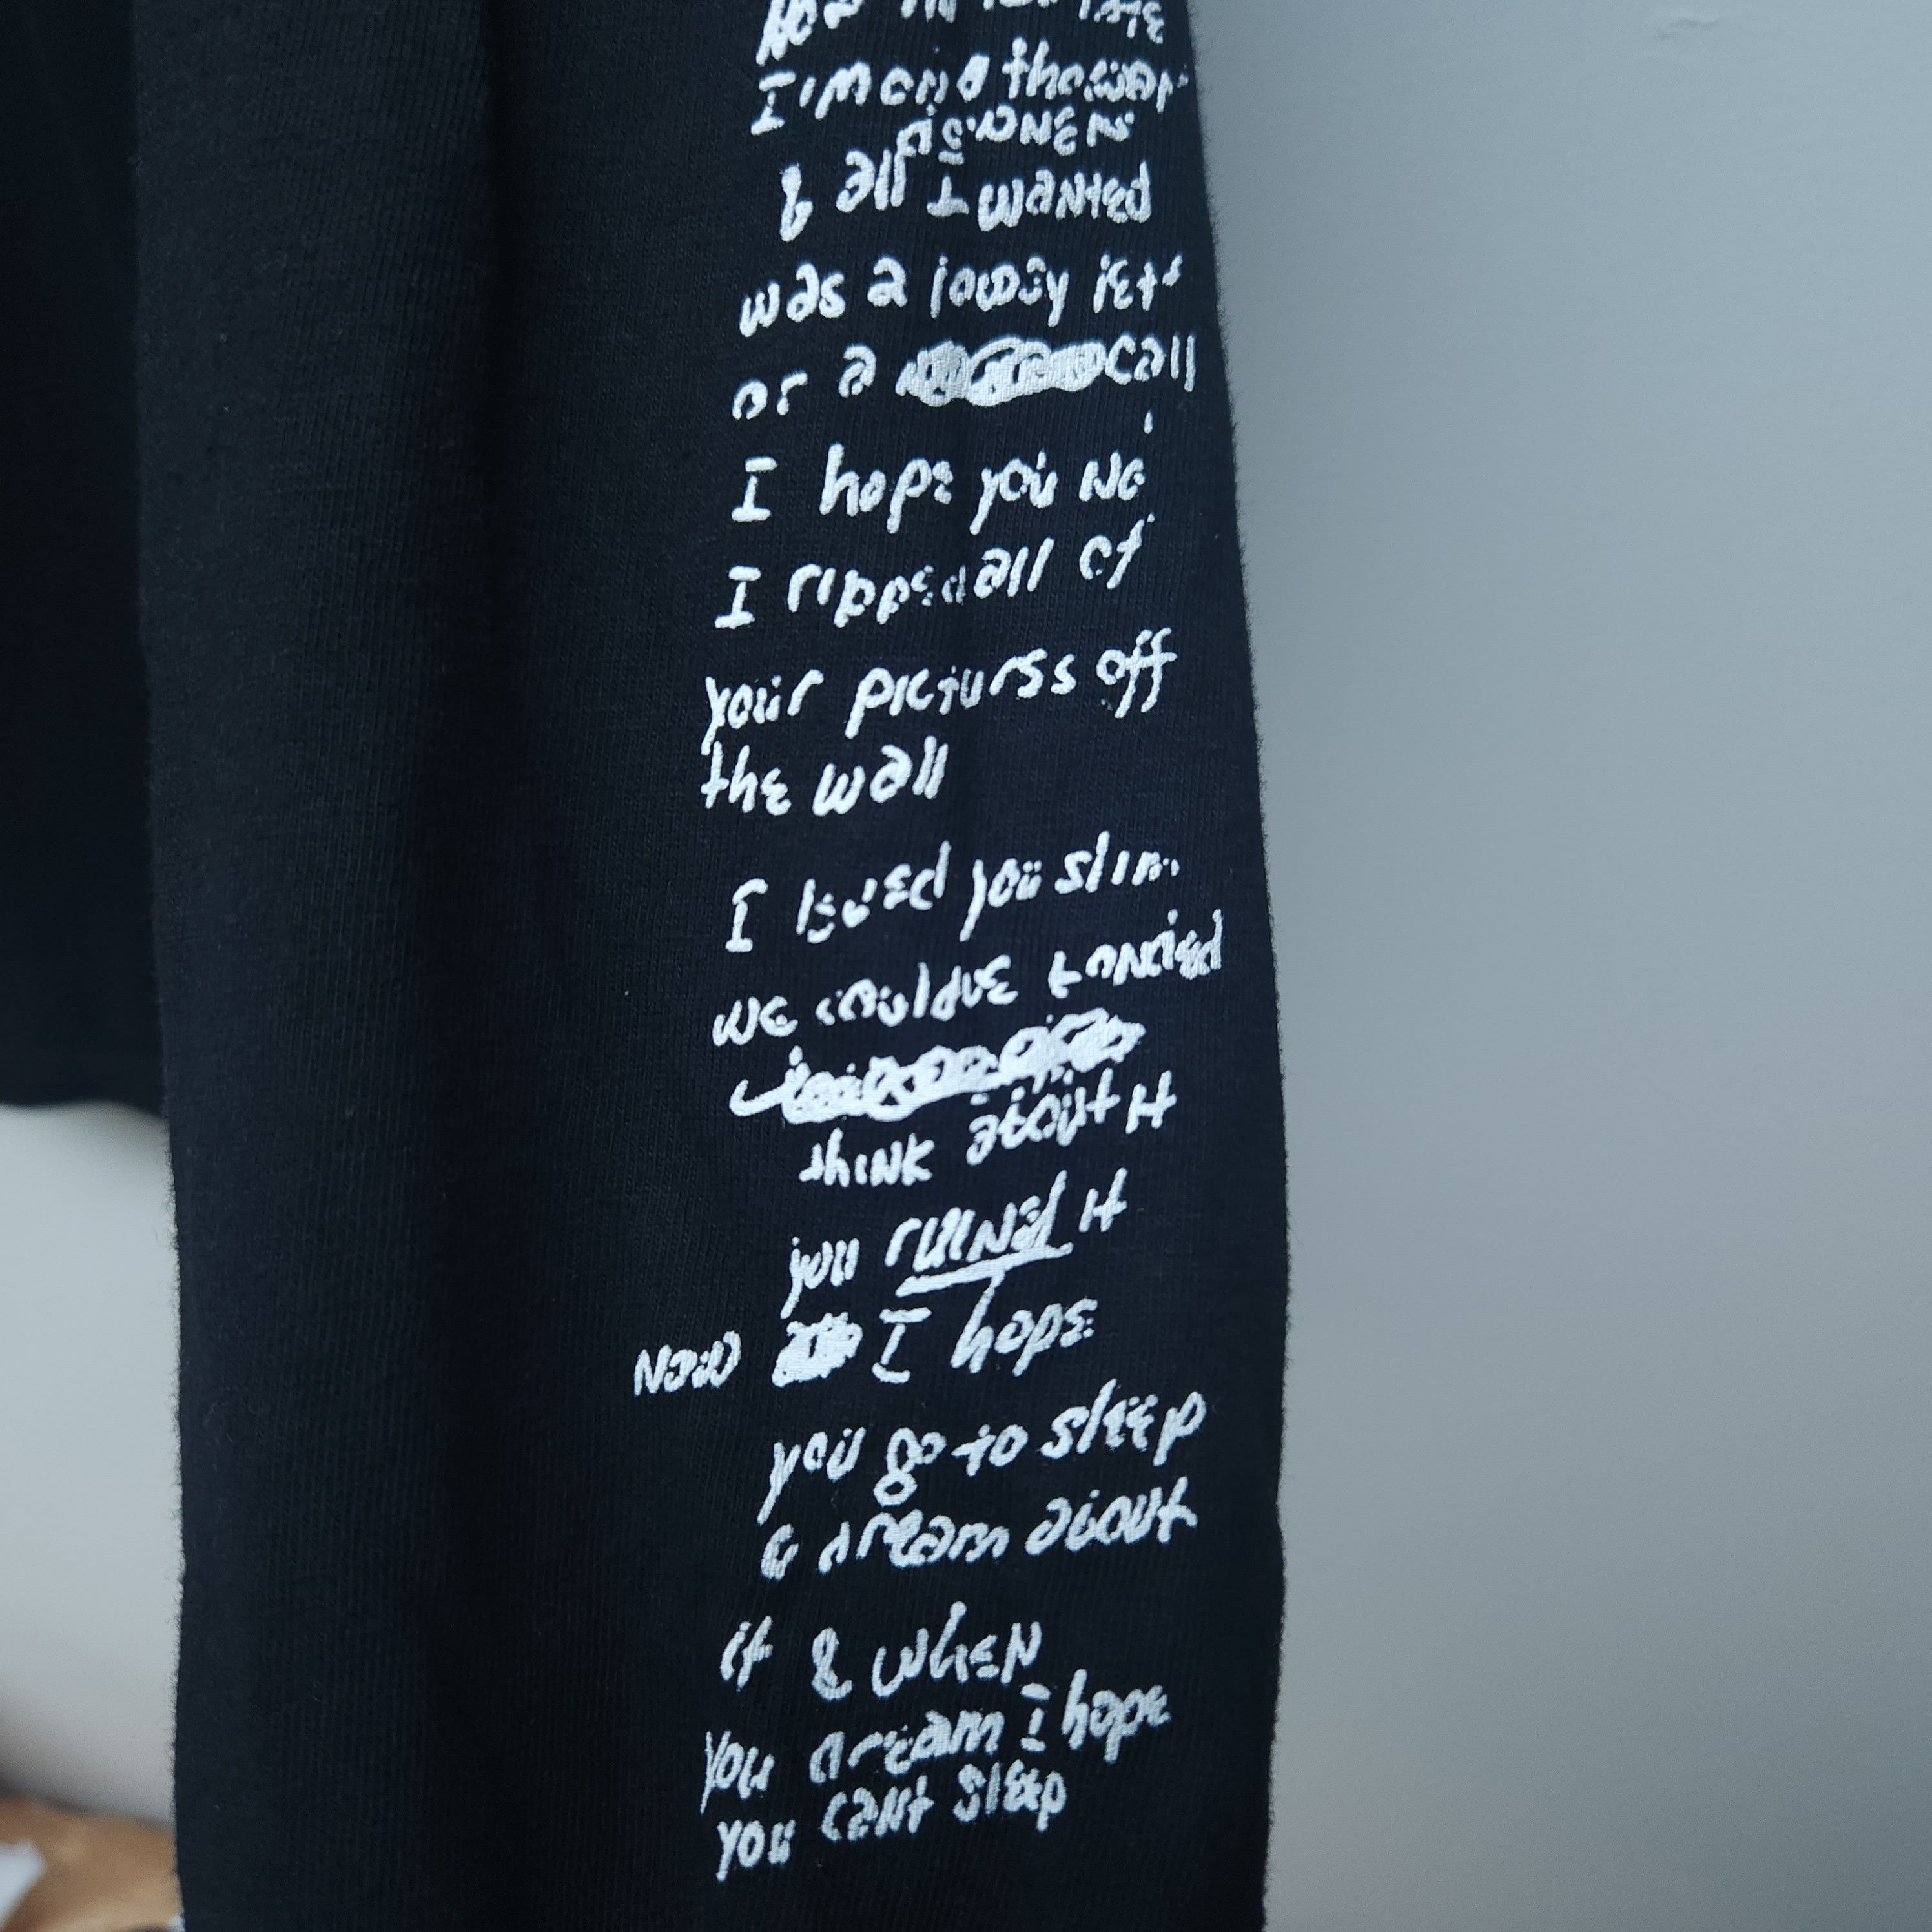 I'm on a thousand
& all I wanted
was a lousy lett
or a call
I hope you no
I ripped all of
your pictures off
the wall
I loved you slim
we couldve
think about it
you ruined it
Now I hope
you go to sleep
& dream about
it & when
you dream I hope
you cant sleep